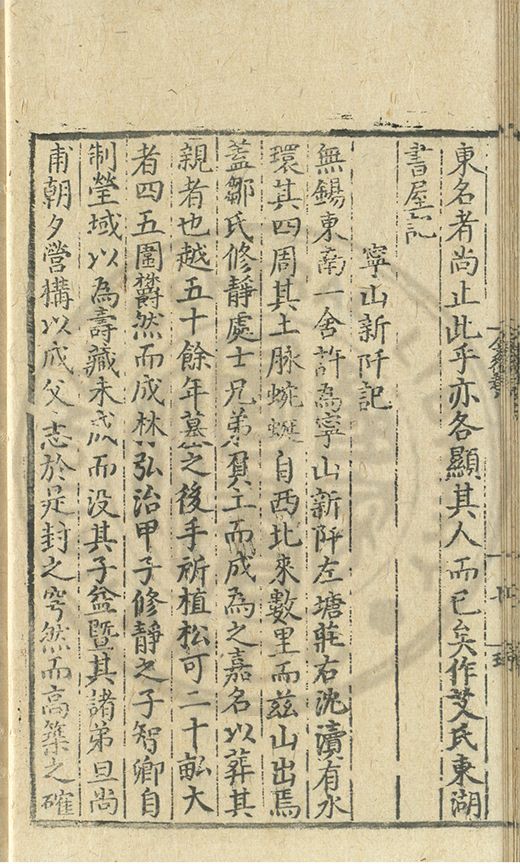 東名者尚止此乎亦各顯其人而已矣作艾氏東湖
書屋記
寧山新阡記
無錫東南一舍許為寧山新阡左塘莊右沈瀆有水
環其四周其土脉蜿蜒自西北來數里而茲山出焉
蓋鄒氏修靜處士兄弟負土而成為之嘉名以葬其
親者也越五十餘年墓之後手所植松可二十畝大
者四五圍欝然而成林弘治甲子修靜之子智卿自
制塋域以為壽藏未成而没其子益暨其諸弟旦尚
甫朝夕營構以成父志於是封之穹然而高築之確